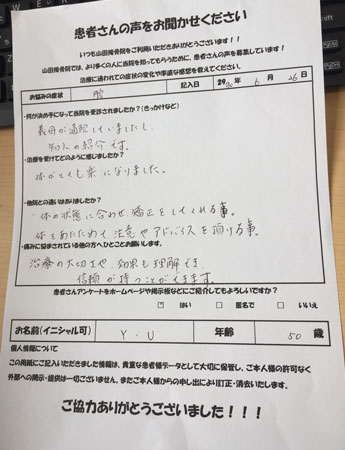 患者さんの声をお聞かせください
いつも山田接骨院をご利用いただきありがとうございます！！
山田接骨院では、より多くの人に当院を知ってもらうために、患者さんの声を募集しています！
治療に通われての症状の変化や率直な感想を教えてください。
お悩みの症状 記入日 30年 6月 26日
・何が決め手になって当院を受診されましたか？(きっかけなど)
義母が通院していましたし、
知人の紹介です。
・治療を受けてどのように感じましたか？
体がとても楽になりました。
・他院との違いはありましたか？
・体の状態に合わせ矯正をしてくれる事。
体をあたためて、注意やアドバイスを頂ける事。
・痛みに悩まされている他の方へひとことお願いします。
治療の大切さや、効果も理解でき、
信頼が持つことができます。
患者さんアンケートをホームページや掲示板などにご紹介してもよろしいですか？
はい □ 匿名で □ いいえ
お名前(イニシャル可) Y・U 年齢 50 歳
個人情報について
この用紙にご記入いただきました情報は、貴重な患者様データとして大切に保管し、ご本人様の許可なく
外部への開示・提供は一切ございません。またご本人様からの申し出により訂正・消去いたします。
ご協力ありがとうございました！！！